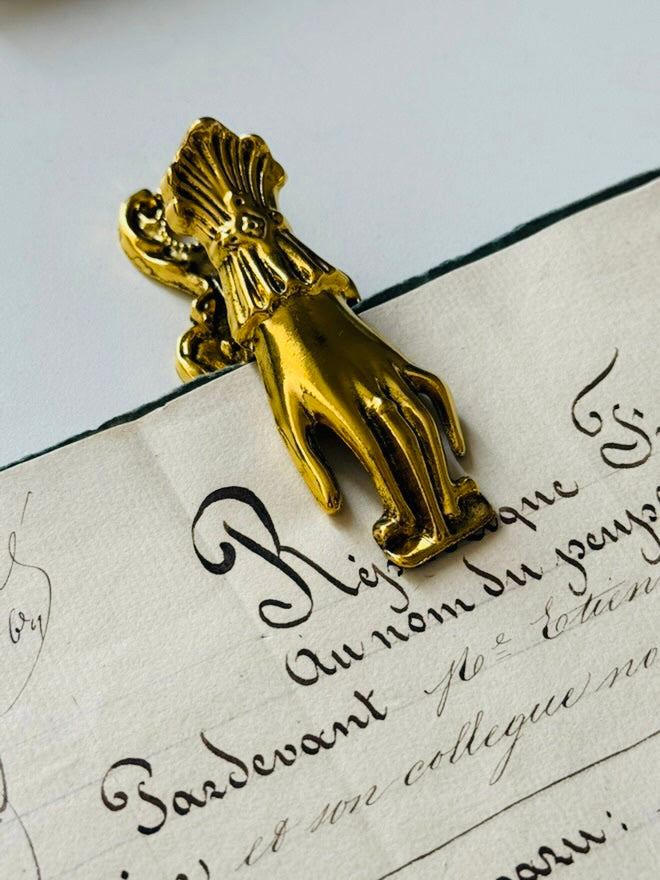 Rép que F
Au nom du peup
Pardevant Me Etien
et son collegue no
paru: